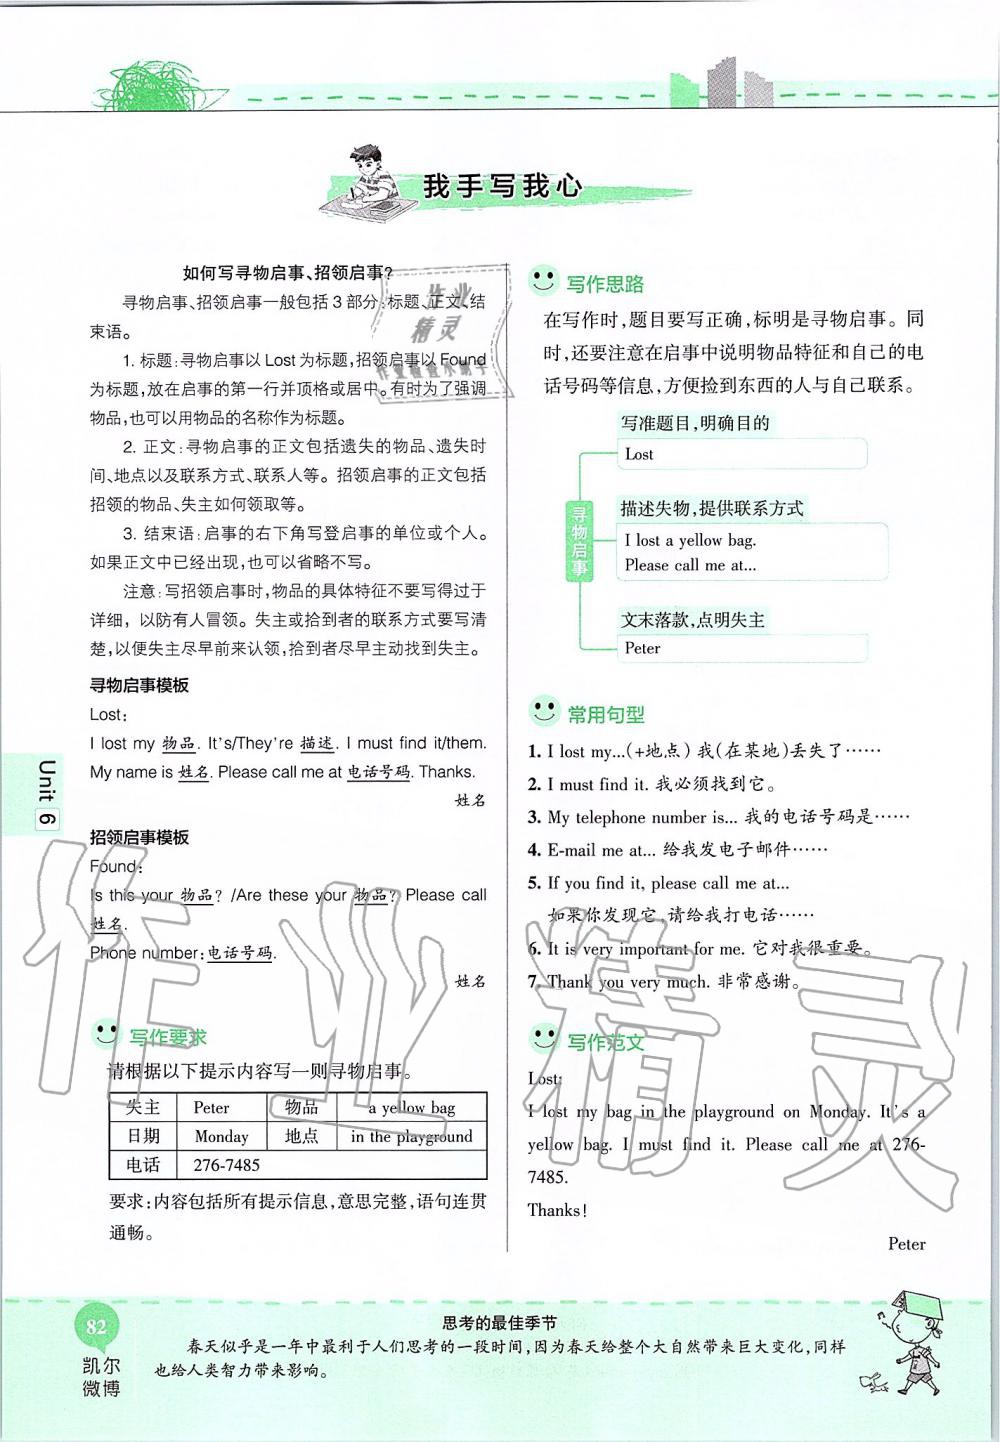 我手写我心
如何写寻物启事、招领启事?
寻物启事、招领启事一般包括3部分:标题、正文、结
束语。
1. 标题:寻物启事以Lost为标题,招领启事以Found
为标题,放在启事的第一行并顶格或居中。有时为了强调
物品,也可以用物品的名称作为标题。
2. 正文:寻物启事的正文包括遗失的物品、遗失时
间、地点以及联系方式、联系人等。招领启事的正文包括
招领的物品、失主如何领取等。
3. 结束语:启事的右下角写登启事的单位或个人。
如果正文中已经出现,也可以省略不写。
注意:写招领启事时,物品的具体特征不要写得过于
详细,以防有人冒领。失主或拾到者的联系方式要写清
楚,以便失主尽早前来认领,拾到者尽早主动找到失主。
寻物启事模板
Lost:
I lost my 物品. It's/They're 描述. I must find it/them.
My name is 姓名. Please call me at 电话号码. Thanks.
姓名
招领启事模板
Found:
Is this your 物品? /Are these your 物品? Please call
姓名.
Phone number:电话号码.
姓名
写作要求
请根据以下提示内容写一则寻物启事。
失主 Peter 物品 a yellow bag
日期 Monday 地点 in the playground
电话 276-7485
要求:内容包括所有提示信息,意思完整,语句连贯
通畅。
写作思路
在写作时,题目要写正确,标明是寻物启事。同
时,还要注意在启事中说明物品特征和自己的电
话号码等信息,方便捡到东西的人与自己联系。
寻物启事
写准题目,明确目的
Lost
描述失物,提供联系方式
I lost a yellow bag.
Please call me at...
文末落款,点明失主
Peter
常用句型
1. I lost my...(+地点) 我(在某地)丢失了……
2. I must find it. 我必须找到它。
3. My telephone number is... 我的电话号码是……
4. E-mail me at... 给我发电子邮件……
5. If you find it, please call me at...
如果你发现它,请给我打电话……
6. It is very important for me. 它对我很重要。
7. Thank you very much. 非常感谢。
写作范文
Lost:
I lost my bag in the playground on Monday. It's a
yellow bag. I must find it. Please call me at 276-
7485.
Thanks!
Peter
Unit 6
82
凯尔
微博
思考的最佳季节
春天似乎是一年中最利于人们思考的一段时间,因为春天给整个大自然带来巨大变化,同样
也给人类智力带来影响。
作业
精灵
作业精灵